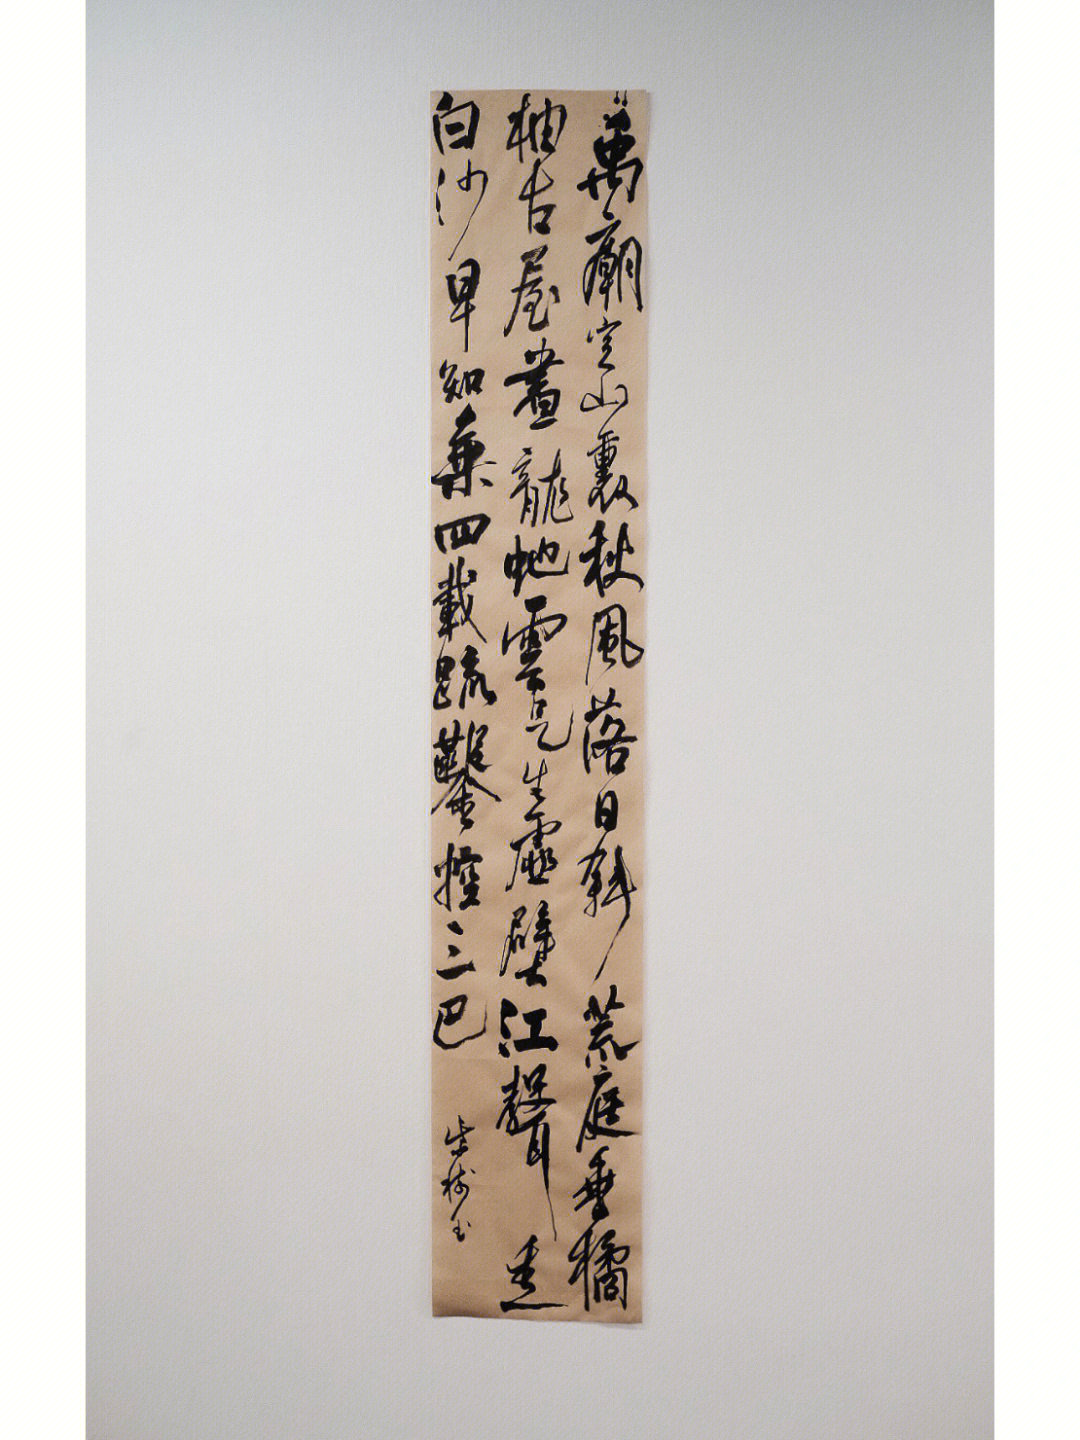 禹廟空山裏秋風落日斜荒庭垂橘
柚古屋畫龍虵雲氣生虛壁江聲走
白沙早知乘四載疏鑿控三巴